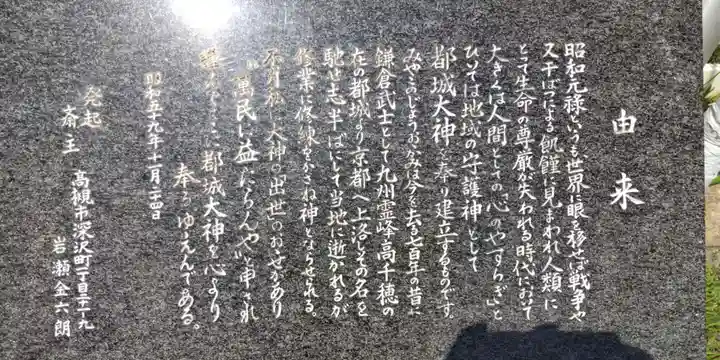 由来
昭和元禄というも世界に眼を移せば戦争や
又干ばつによる飢饉に見まわれ人類に
とって生命の尊厳が失われる時代において
大きくは人間としての"心のやすらぎ"と
ひいては地域の守護神として
都城大神を奉り建立するものです。
みやこのじょうおおかみは今を去る七百年の昔に
鎌倉武士として九州霊峰高千穂の
在の都城より京都へ上洛しその名を
馳せ志半ばにして当地に逝かれるが
修業に修練をかさね神とならせられる。
大神の出世のおおせがあり
"萬民に益たらんや"と申され
ここに都城大神を心より
奉るゆえんである。
昭和五十九年十月二十四日
発起
斎主 高槻市深沢町一丁目二十一九
岩瀬金六朗